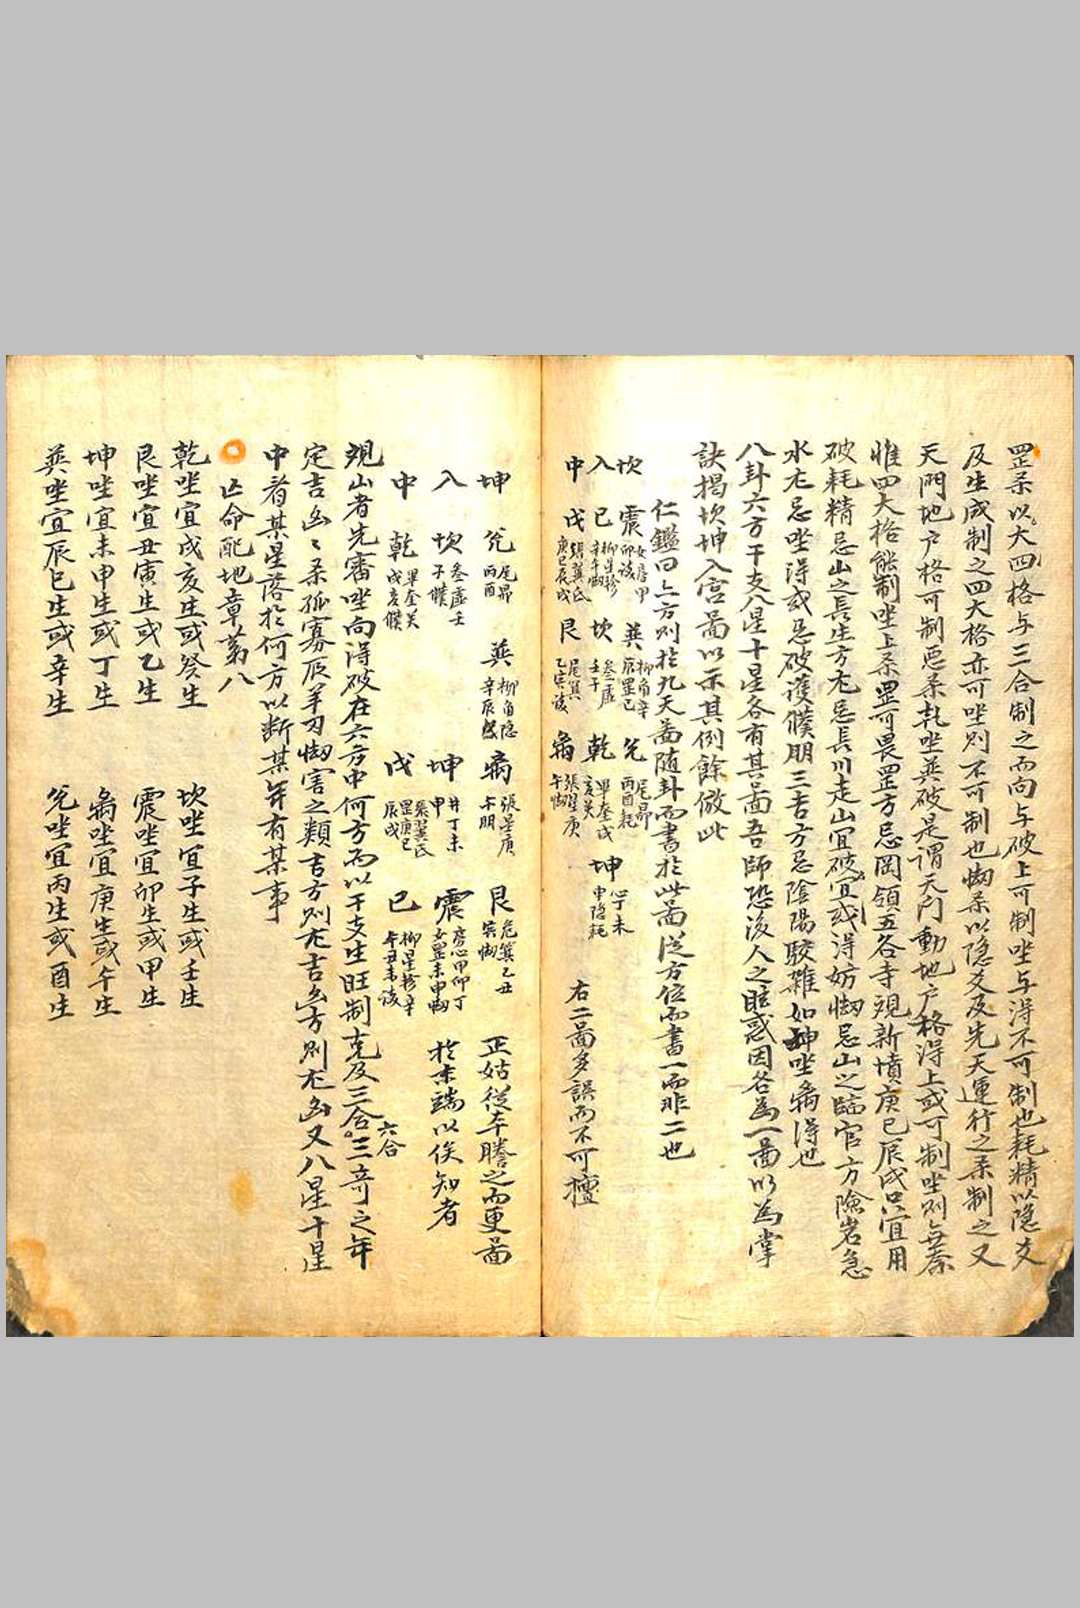 罡柔以大四格与三合制之而向与破上可制坐与淂不可制也耗精以隐爻
及生成制之四大格亦可坐則不可制也㘛柔以隐爻及先天運行之柔制之又
天門地户格可制悪柔乹坐巽破是謂天门動地户格淂上或可制坐則
惟四大格能制坐上柔罡可畏罡方忌岡領五谷寺覌新墳庚巳辰戌只宜用
破耗精忌山之長生方尤忌長川走山宜破宜或淂妨㘛忌山之臨官方險岩急
水尤忌坐淂或忌破護㒒朋三吉方忌陰陽駁雜如坤坐离淂也
八卦六方干支八星十星各有其啚吾師恐後人之眩惑因各為一啚以為掌
訣揭坎坤入宫啚以示其例餘倣此
仁鑑曰上方則扵九天啚随卦而書扵此啚從方位而書一而非二也
坎 震 女房甲 卯该 兊 尾昴 丙酉耗
入 巳 柳星軫 辛午㘛 巽 柳角辛 辰罡巳
中 戌 庚巳辰戌 坎 参虚 壬子 乾 畢奎戌 亥 坤 心丁未 申隐耗
艮 尾箕 乙寅该 离 張翌庚 午㘛 右二啚多誤而不可擅
坤 兊 尾昴 丙酉 巽 柳角隐 辛辰 离 張星庚 午朋 艮 危箕乙丑 寅㘛 正姑從夲謄之而更啚
入 坎 参虚壬 子㒒 坤 井丁未 申 震 房心甲卯丁 女罡未申㘛 扵末端以俟知者
中 乾 畢奎 戌亥㒒 戌 罡庚巳 辰戌 巳 柳星軫辛 午丑未该
覌山者先審坐向淂破在六方中何方而以干支生旺制克及三合六合三竒之年
定吉凶〻柔孤寡辰羊刃㘛害之類吉方則尤吉凶方則尤凶又八星十星
中看某星落扵何方以断某年有某事
亾命配地章苐八
乾坐宜戌亥生或癸生 坎坐宜子生或壬生
艮坐宜丑寅生或乙生 震坐宜卯生或甲生
坤坐宜未申生或丁生 离坐宜庚生或午生
巽坐宜辰巳生或辛生 兊坐宜丙生或酉生